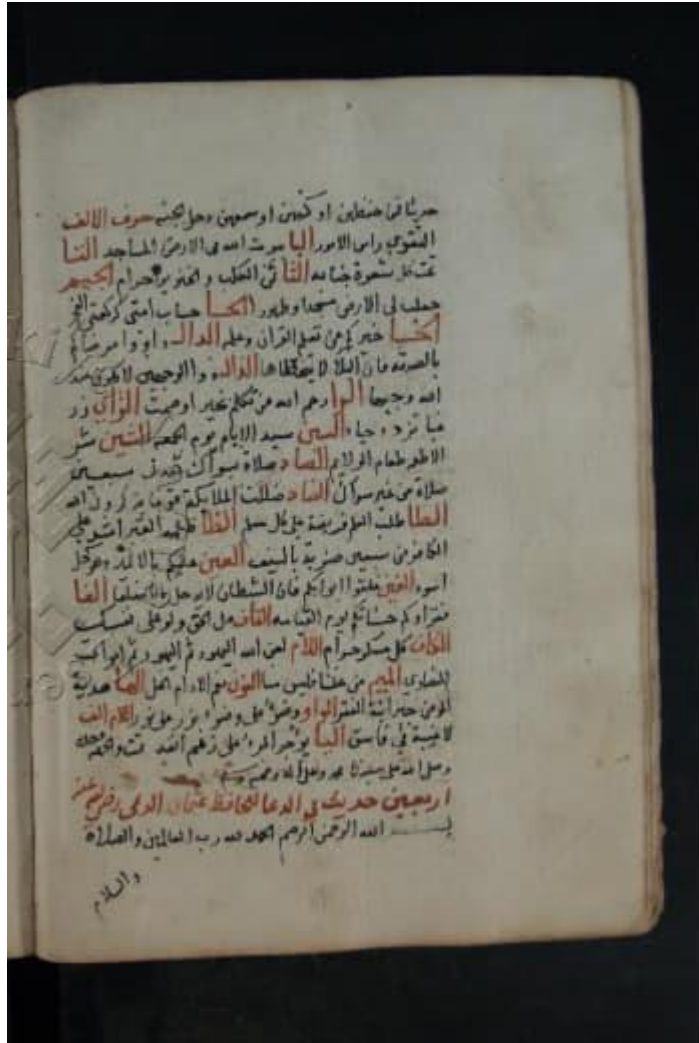 حديثا فمن حفظهن او كتبهن او سمعهن دخل الجنة حرف الالف
التقوى راس الامور البا بيوت الله فى الارض المساجد التا
تحت كل شعرة جنابه الثا ثمن الكلب و الخنزير حرام الجيم
جعلت لى الارض مسجدا وطهورا الحا حساب امتى كركعتى الفجر
الخا خيركم من تعلم القران وعلم الدال
بالصدقه فان البلا لا يتخطاها الذال ذو الوجهين لا يكون عند
الله وجيها الرا رحم الله من تكلم بخير او صمت الزاى زر
غبا تزدد حبا السين سيد الايام يوم الجمعه الشين شر
الاطعمه طعام الولايم الصاد صلاة سواك سبعين
صلاة من غير سواك الضاد ضالت الملايكة الله
الطا طلب العلم فريضة على كل مسلم الظا
الكافر من سبعين ضربة بالسيف العين عليكم بالاثمد
الغين غلقوا ابوابكم فان الشيطان لا يدخل بابا مغلقا الفا
يوم القيامه القاف قل الحق ولو على نفسك
الكاف كل مسكر حرام اللام لعن الله اليهود ثم اليهود ثم
النصارى الميم من غشنا فليس منا النون نعم الادام الخل الها هدية
المومن الفقر الواو وضوء على وضوء نور على نور اللام الف
لا غيبة فى فاسق اليا يوجر المرء على رغم انفه تمت والحمد لله
وصلى الله على سيدنا محمد وعلى اله وصحبه وسلم
اربعين حديث فى الدعا للحافظ عثمان الدمى رضى الله عنه
بسم الله الرحمن الرحيم الحمد لله رب العالمين والصلاة
والسلام